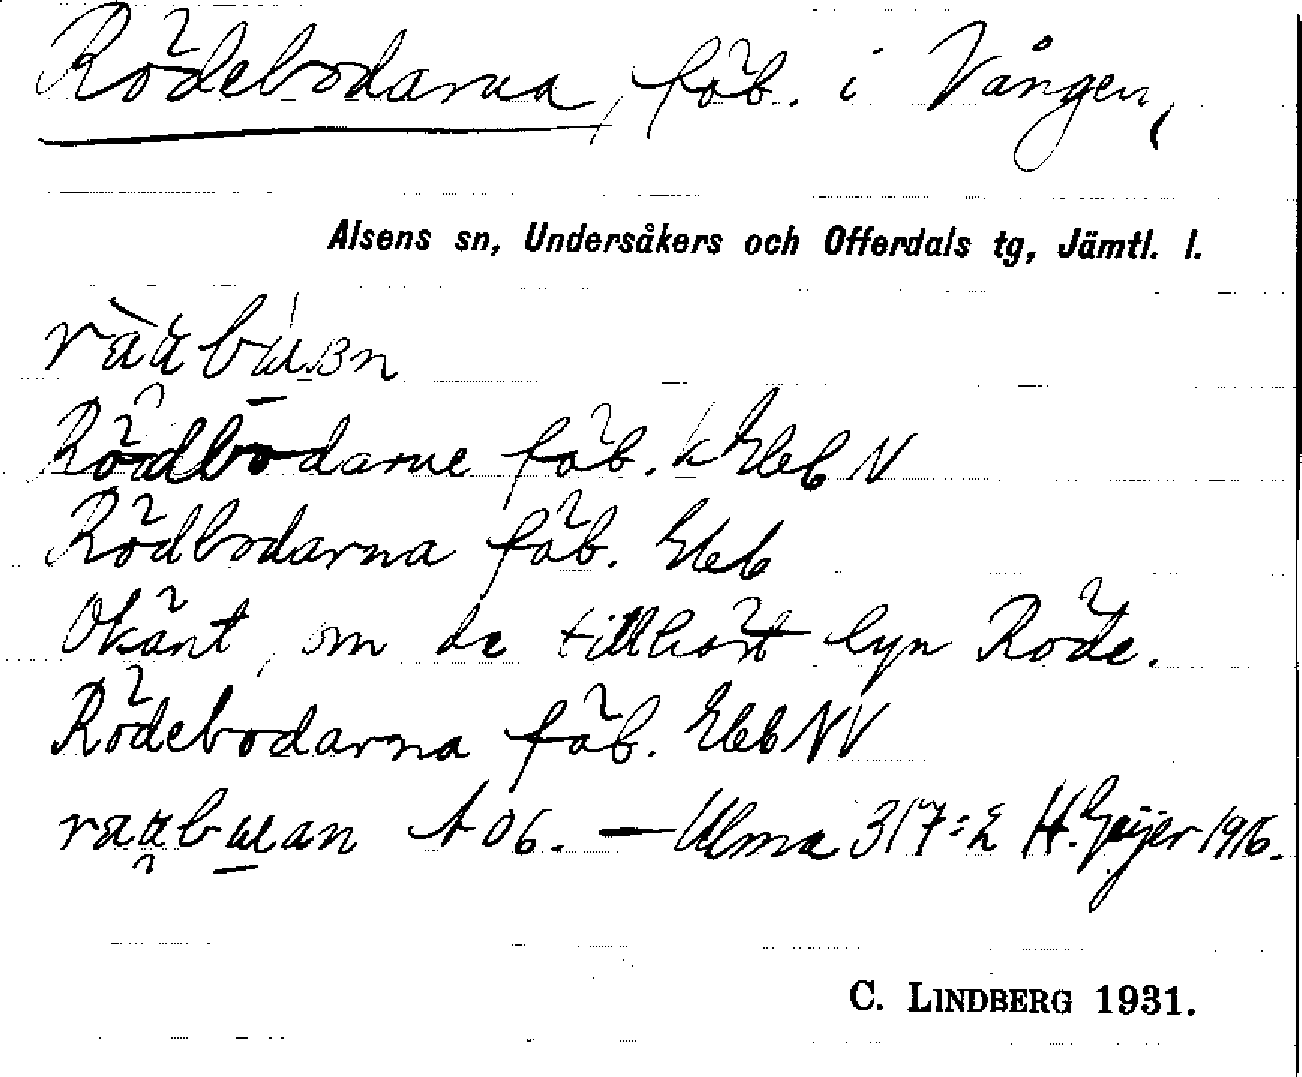 Rödebodarna, fäb. i Vången,
Alsens sn, Undersåkers och Offerdals tg, Jämtl. l.
Rödbodarne fäb. k Eleb N
Rödbodarna fäb. Eleb
Okänt, om de tillhört byn Röde.
Rödebodarna fäb. Eleb NV
A 06. — Ulma 317:2 H. Geijer 1916.
C. LINDBERG 1931.